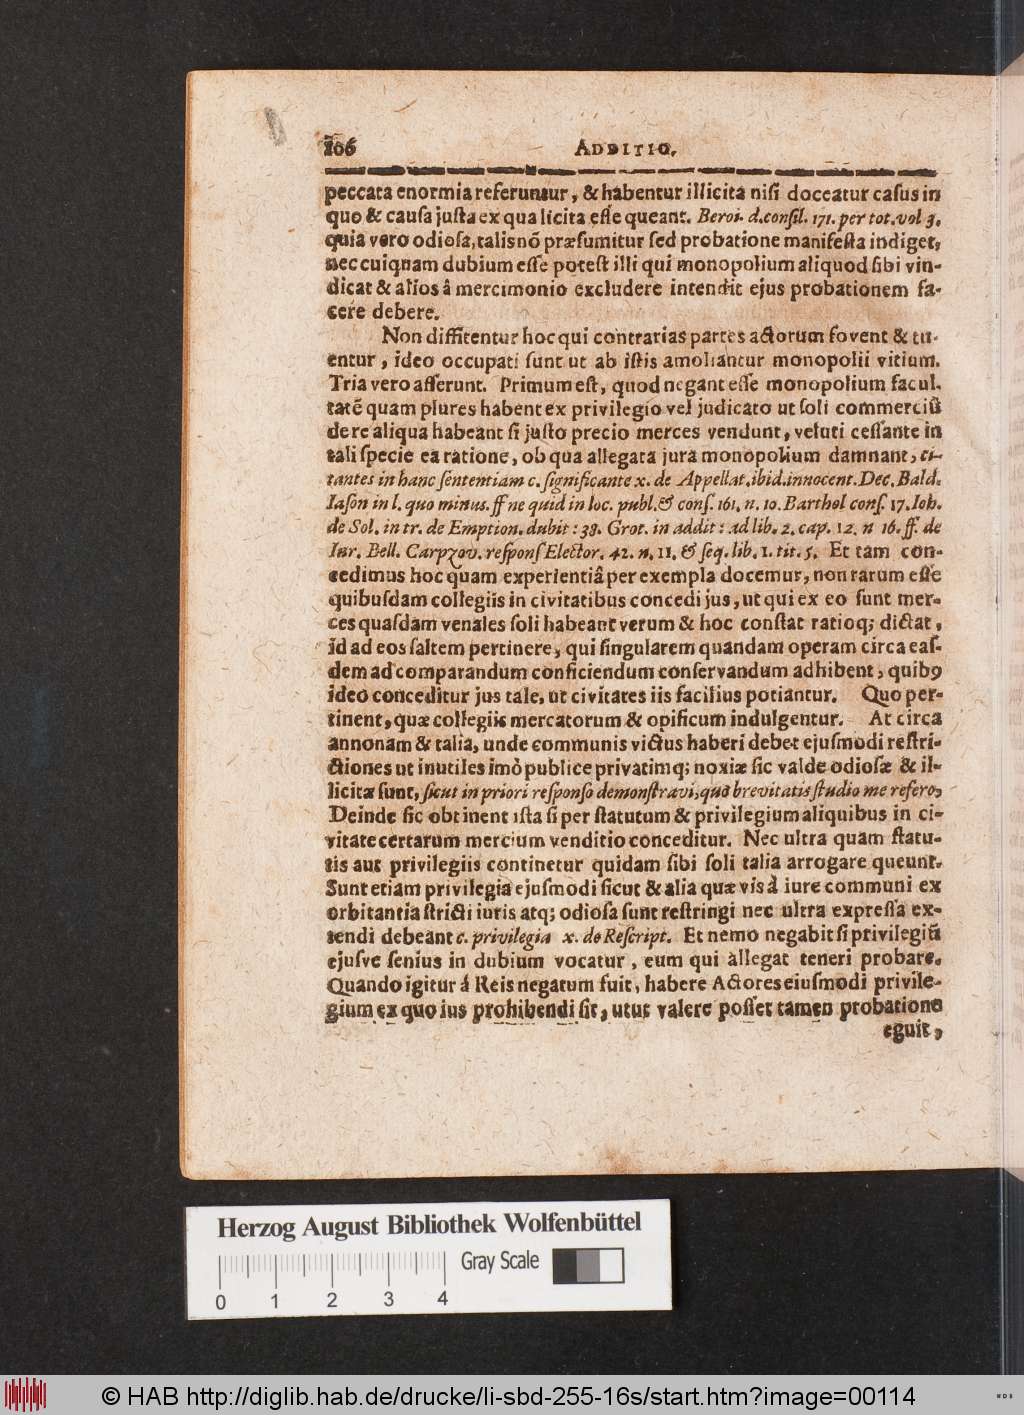 106 ADDITIO.
peccata enormia referuntur, & habentur illicita nisi doceatur casus in
quo & causa justa ex qua licita esse queant. Beroi. d. consil. 171. per tot. vol 3.
quia vero odiosa, talis nõ præsumitur sed probatione manifesta indiget,
nec cuiquam dubium esse potest illi qui monopolium aliquod sibi vin-
dicat & alios â mercimonio excludere intendit ejus probationem fa-
cere debere.
Non diffitentur hoc qui contrarias partes actorum fovent & tu-
entur, ideo occupati sunt ut ab istis amoliantur monopolii vitium.
Tria vero afferunt. Primum est, quod negant esse monopolium facul.
tatẽ quam plures habent ex privilegio vel judicato ut soli commerciũ
de re aliqua habeant si justo precio merces vendunt, veluti cessante in
tali specie ea ratione, ob qua allegata jura monopolium damnant, ci-
tantes in hanc sententiam c. significante x. de Appellat. ibid. innocent. Dec. Bald.
Iason in l. quo minus. ff ne quid in loc. publ. & cons. 161. n. 10. Barthol cons. 17. Ioh.
de Sol. in tr. de Emption. dubit: 38. Grot. in addit: ad lib. 2. cap. 12. n 16. ff. de
Iur. Bell. Carpzov. respons Elector. 42. n. 11. & seq. lib. 1. tit. 5. Et tam con-
cedimus hoc quam experientiâ per exempla docemur, non rarum esse
quibusdam collegiis in civitatibus concedi jus, ut qui ex eo sunt mer-
ces quasdam venales soli habeant verum & hoc constat ratioq; dictat,
id ad eos saltem pertinere, qui singularem quandam operam circa eas-
dem ad comparandum conficiendum conservandum adhibent, quib9
ideo conceditur jus tale, ut civitates iis facilius potiantur. Quo per-
tinent, quæ collegiis mercatorum & opificum indulgentur. At circa
annonam & talia, unde communis victus haberi debet ejusmodi restri-
ctiones ut inutiles imò publice privatimq; noxiæ sic valde odiosæ & il-
licitæ sunt, sicut in priori responso demonstravi, quò brevitatis studio me refero,
Deinde sic obtinent ista si per statutum & privilegium aliquibus in ci-
vitate certarum mercium venditio conceditur. Nec ultra quam statu-
tis aut privilegiis continetur quidam sibi soli talia arrogare queunt.
Sunt etiam privilegia ejusmodi sicut & alia quæ vis à iure communi ex
orbitantia stricti iuris atq; odiosa sunt restringi nec ultra expressa ex-
tendi debeant c. privilegia x. de Rescript. Et nemo negabit si privilegiũ
ejusve senius in dubium vocatur, eum qui allegat teneri probare.
Quando igitur á Reis negatum fuit, habere Actores eiusmodi privile-
gium ex quo ius prohibendi sit, utut valere posset tamen probatione
eguit,
Herzog August Bibliothek Wolfenbüttel
Gray Scale
0 1 2 3 4
© HAB http://diglib.hab.de/drucke/li-sbd-255-16s/start.htm?image=00114